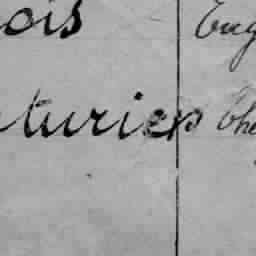 ois Eug
turier Che